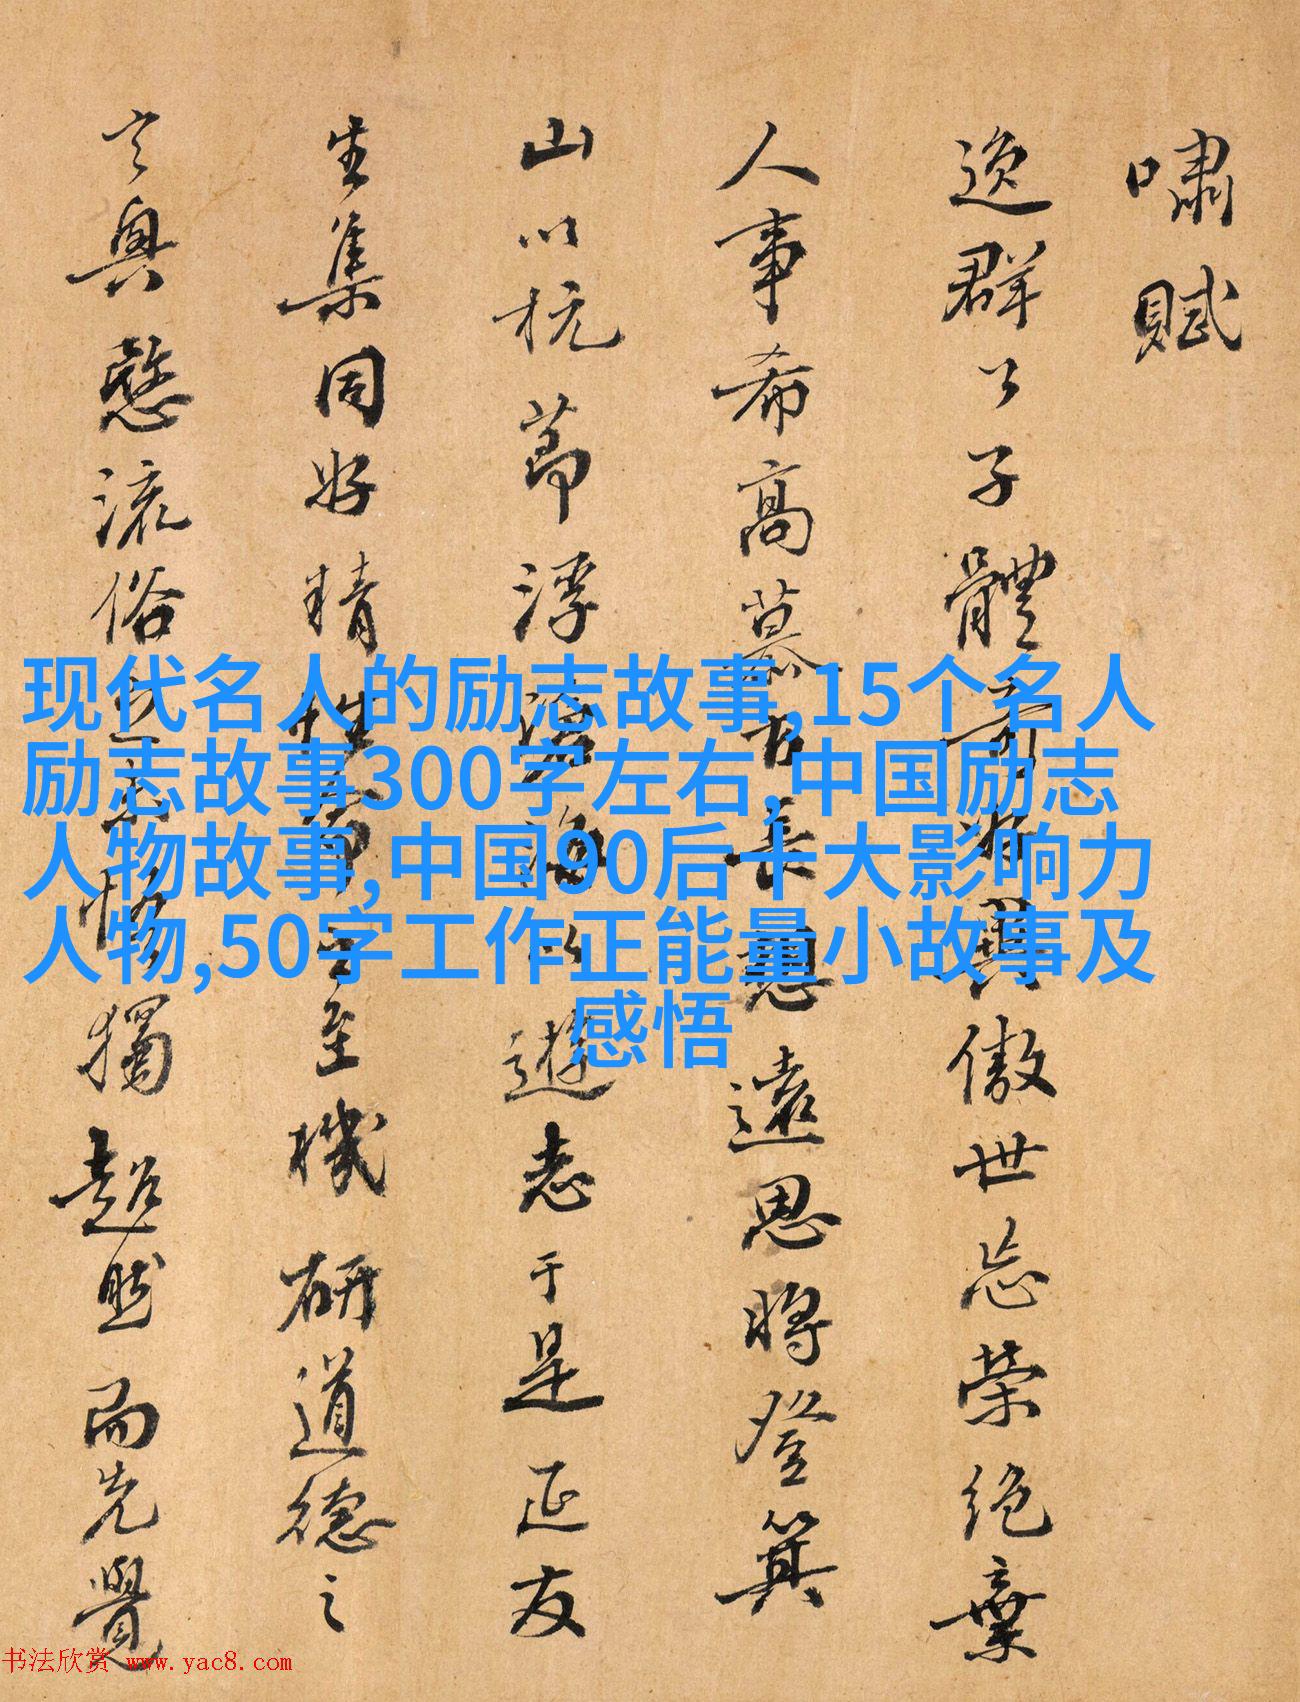 嘯賦
逸群公子體奇好異傲世忘榮絕棄
人事希高慕古長想遠思將登箕
山以抗節浮滄海以遊志于是延友
生集同好精性命之至機研道德之
玄奧愍流俗之未悟獨超然而先覺
现代名人的励志故事,15个名人
励志故事300字左右,中国励志
人物故事,中国90后十大影响力
人物,50字工作正能量小故事及
感悟
书法欣赏 www.yac8.com